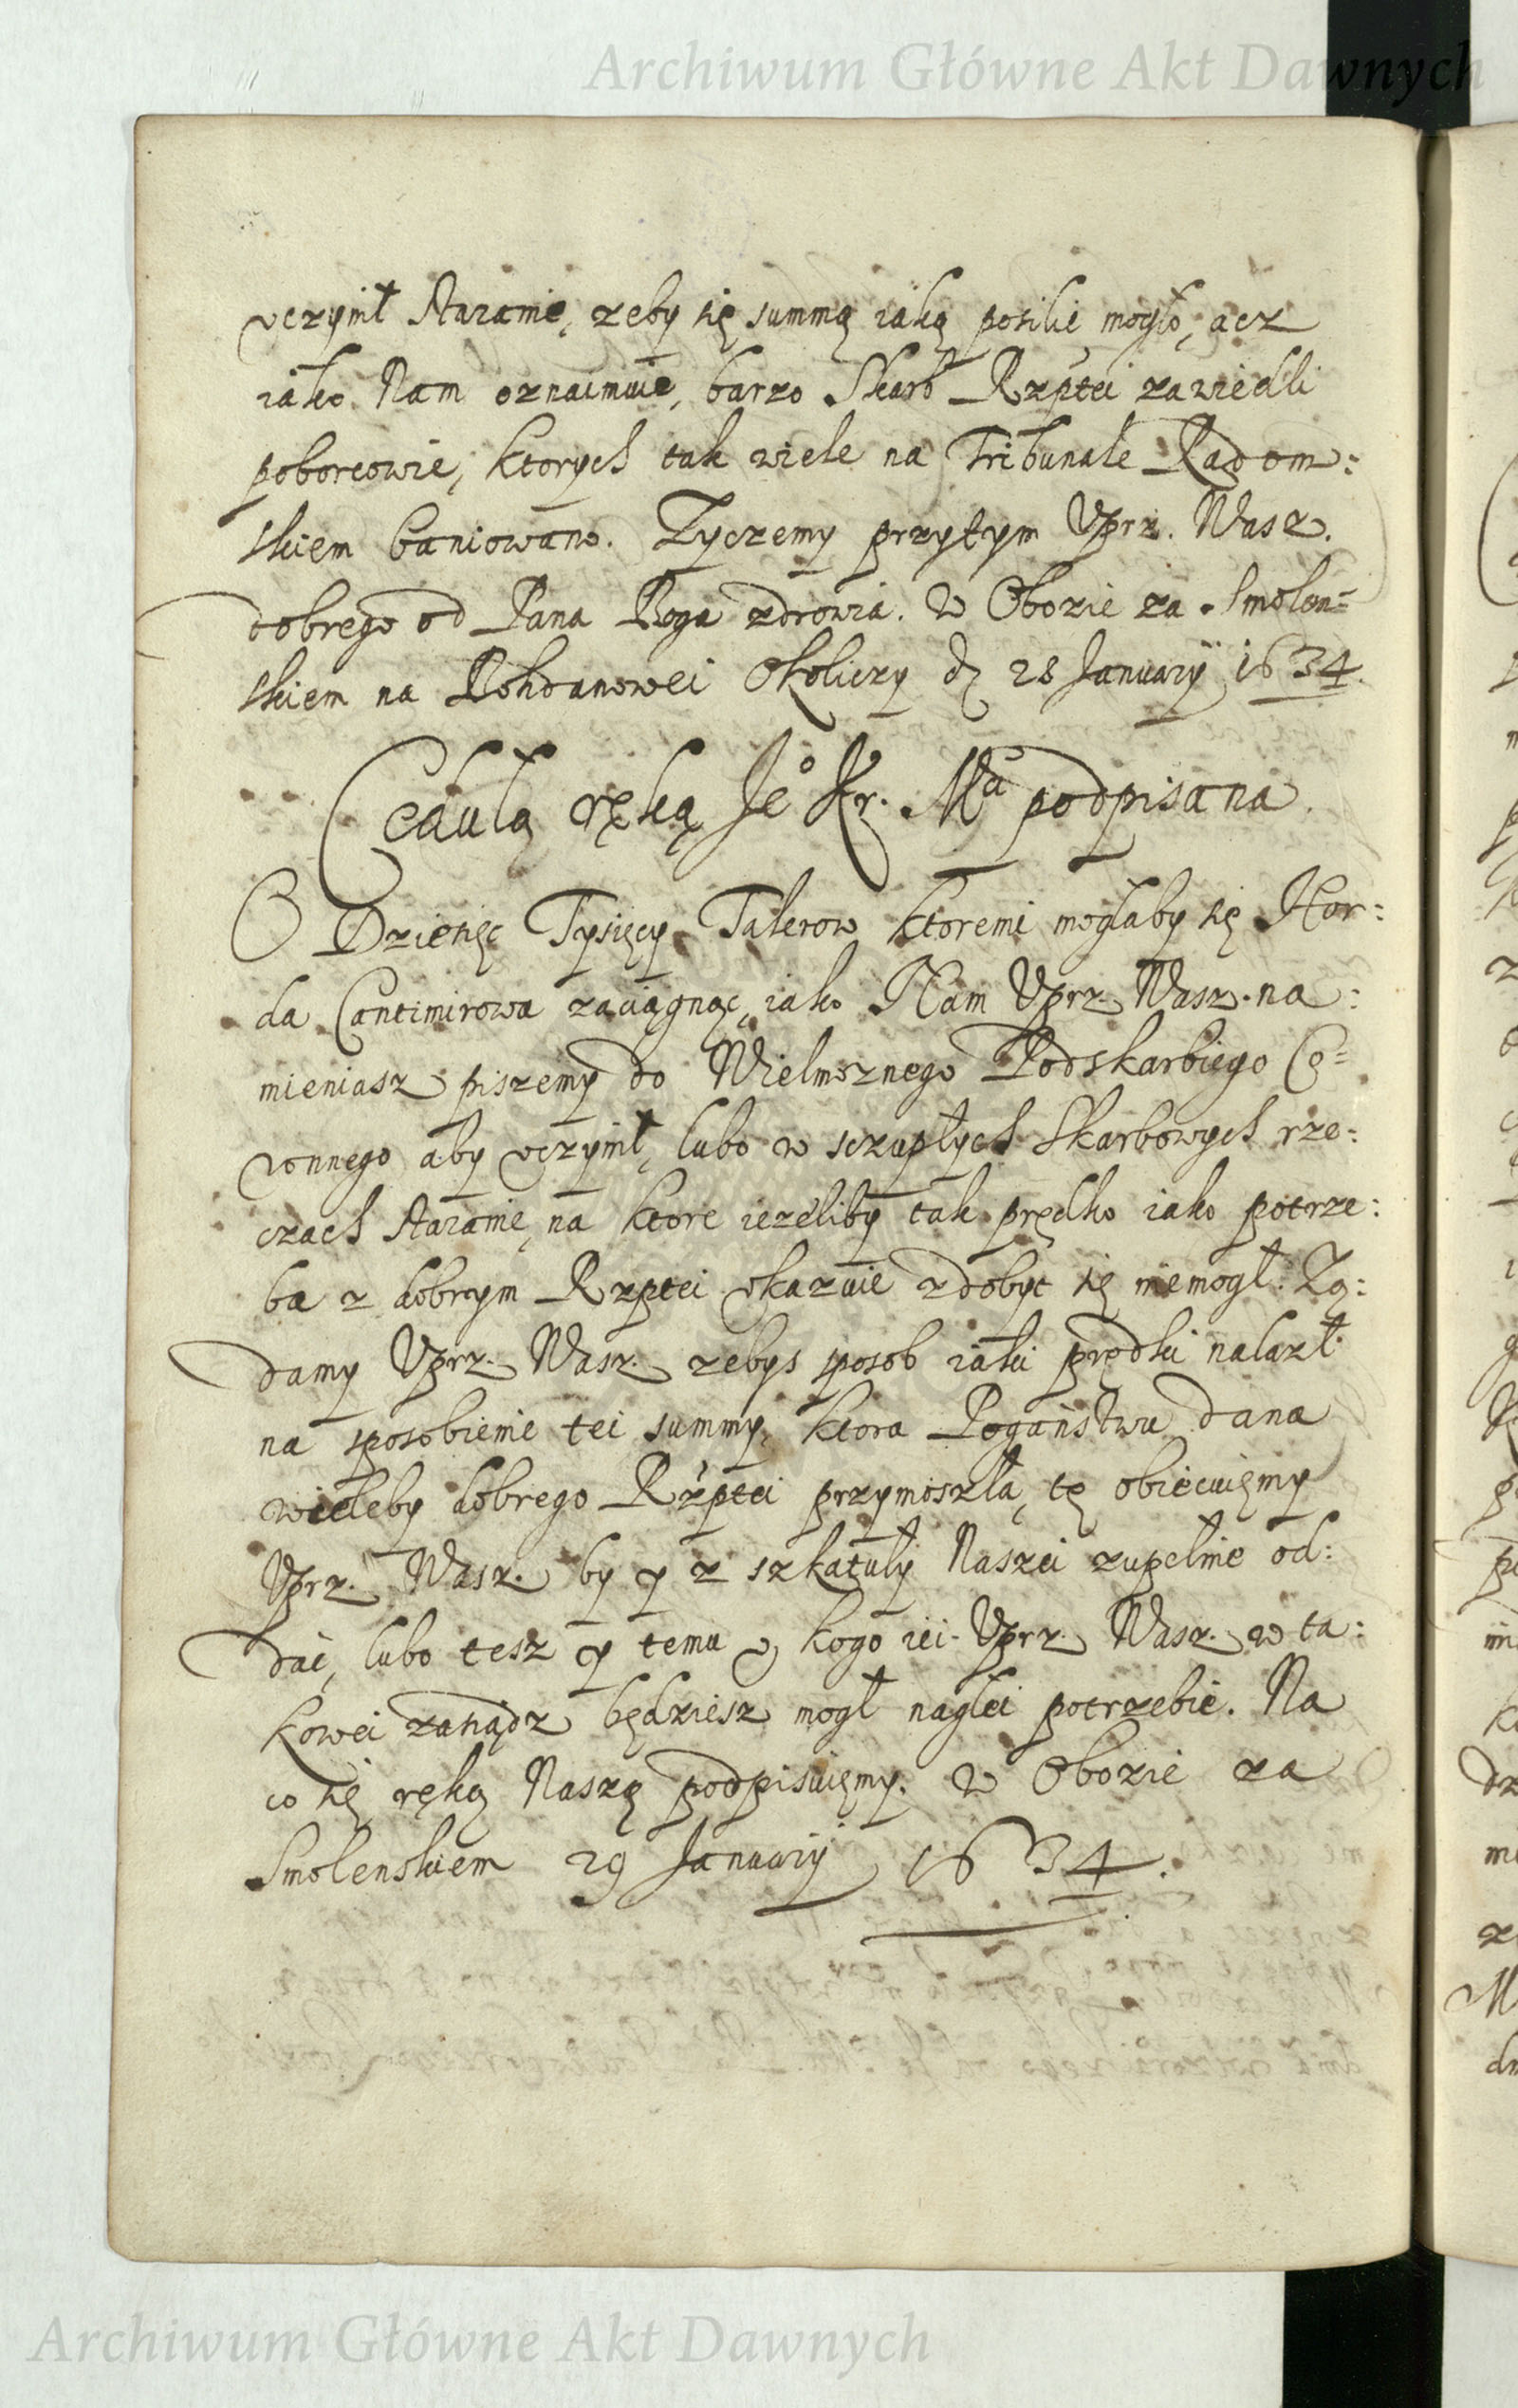 Archiwum Główne Akt Dawnych
vczynił staranie, zeby się summą iaką posilic mogło, acz
iako Nam oznaimuie, barzo Skarb Rzptei zawiedli
poborcowie, ktorych tak wiele na Tribunale Radom:
skiem baniowano. Zyczemy przytym Vprz. Wasz.
dobrego od Pana Boga zdrowia. W Obozie za Smolen=
skiem na Bohdanowei Okoliczy d 28 January 1634.
Cedula ręką Je° Kr. Mci podpisana.
O Dziesięc Tysięcy Talerow ktoremi mogłaby się Hor:
da Cantimirowa zaciągnąc, iako Nam Vprz. Wasz. na:
mieniasz piszemy do Wielmoznego Podskarbiego Co=
ronnego aby vczynił, lubo w sczupłych Skarbowych rze:
czach staranie, na ktore iezeliby tak prędko iako potrze:
ba z dobrym Rzptei vkazuie zdobyc się niemogł. Zą:
damy Vprz. Wasz. zebys sposob iaki prędki nalazł
na sposobienie tei summy, ktora Poganstwu dana
wieleby dobrego Rzptei przyniosła, tę obiecuięmy
Vprz. Wasz. by y z szkatuły Naszei zupełnie od:
dac, lubo tesz y temu v kogo iei Vprz. Wasz. w ta:
kowei zasiądz będziesz mogł nagłei potrzebie. Na
co się ręką Naszą podpisuięmy. W Obozie za
Smolenskiem 29 January 1634.
Archiwum Główne Akt Dawnych